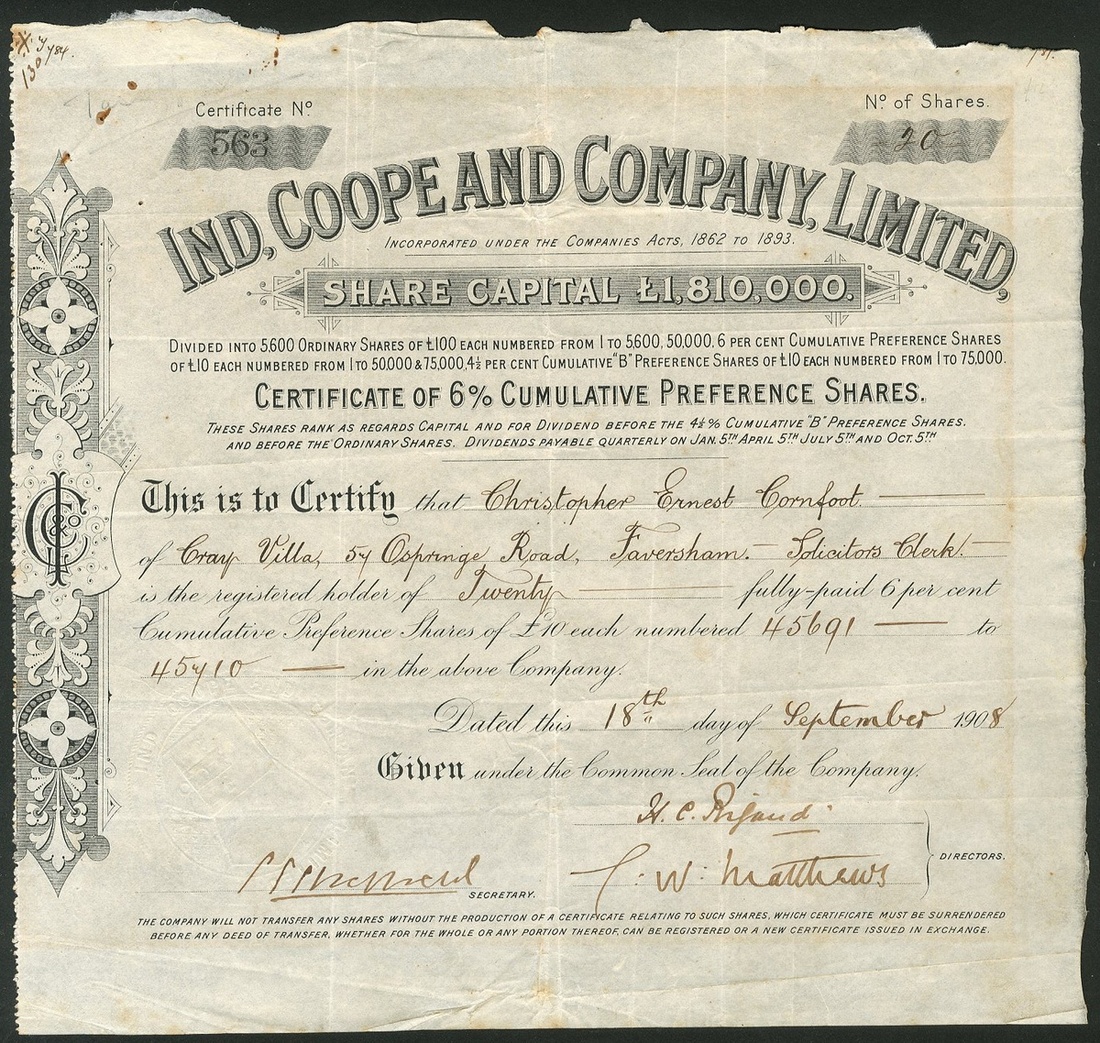 130
Certificate Nº
Nº of Shares.
563
20
IND, COOPE AND COMPANY, LIMITED,
INCORPORATED UNDER THE COMPANIES ACTS, 1862 TO 1893.
SHARE CAPITAL £1,810,000.
DIVIDED INTO 5,600 ORDINARY SHARES OF £100 EACH NUMBERED FROM 1 TO 5,600, 50,000, 6 PER CENT CUMULATIVE PREFERENCE SHARES
OF £10 EACH NUMBERED FROM 1 TO 50,000 & 75,000, 4½ PER CENT CUMULATIVE "B" PREFERENCE SHARES OF £10 EACH NUMBERED FROM 1 TO 75,000.
CERTIFICATE OF 6% CUMULATIVE PREFERENCE SHARES.
THESE SHARES RANK AS REGARDS CAPITAL AND FOR DIVIDEND BEFORE THE 4½% CUMULATIVE "B" PREFERENCE SHARES.
AND BEFORE THE ORDINARY SHARES. DIVIDENDS PAYABLE QUARTERLY ON JAN. 5TH APRIL 5TH JULY 5TH AND OCT. 5TH
This is to Certify that Christopher Ernest Cornfoot.
of Cray Villa, 57 Ospringe Road, Faversham. Solicitors Clerk.
is the registered holder of Twenty fully-paid 6 per cent
Cumulative Preference Shares of £10 each numbered 45691 to
45710 in the above Company.
Dated this 18th day of September 1908
Given under the Common Seal of the Company.
H. C. Rigaud
DIRECTORS.
C. W. Matthews
SECRETARY.
THE COMPANY WILL NOT TRANSFER ANY SHARES WITHOUT THE PRODUCTION OF A CERTIFICATE RELATING TO SUCH SHARES, WHICH CERTIFICATE MUST BE SURRENDERED
BEFORE ANY DEED OF TRANSFER, WHETHER FOR THE WHOLE OR ANY PORTION THEREOF, CAN BE REGISTERED OR A NEW CERTIFICATE ISSUED IN EXCHANGE.